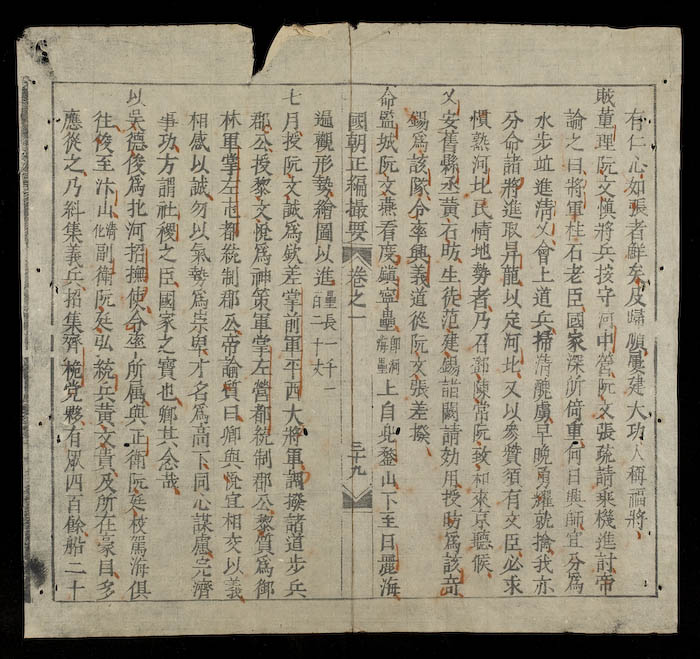 有仁心如張者鮮矣及歸願屢建大功人稱福將
敢董理阮文慎將兵按守河中營阮文張疏請乘機進討帝
諭之曰將軍柱石老臣國家深所倚重何日興師宜分為
水步竝進清乂會上道兵掃清醜虜早晚勇耀就擒我亦
分命諸將進取昇龍以定河北又以參贊須有文臣必求
慣熟河北民情地勢者乃召鄧陳常阮致和來京聽候
乂安舊縣丞黃石昉生徒范建錫詣闕請効用授昉為該奇
錫為該隊分率興義道從阮文張差撥
命監城阮文燕看度鎮寧壘即洞海壘上自兜鍪山下至日麗海
國朝正編撮要 卷之一 三十九
遍觀形勢繪圖以進壘長一千一百二十丈
七月授阮文誠為欽差掌前軍平西大將軍調撥諸道步兵
郡公授黎文悅為神策軍掌左營都統制郡公黎質為御
林軍掌左屯都統制郡公帝諭質曰卿與悅宜相交以義
相感以誠勿以氣勢為崇卑才名為高下同心謀慮完濟
事功方謂社稷之臣國家之寶也卿其念哉
以吳德俊為北河招撫使令率所屬與正衛阮廷枝駕海俱
往俊至汴山清化副衛阮廷弘統兵黃文貴及所在豪目多
應從之乃糾集義兵招集齊桅党夥有眾四百餘船二十